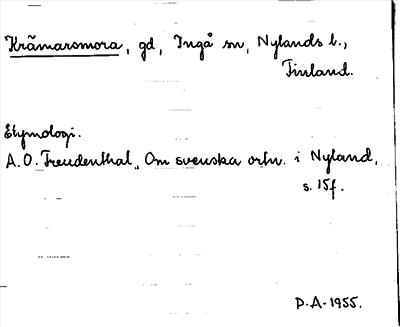 Krämarsmora, gd, Ingå sn, Nylands l.,
Finland.
Etymologi.
A. O. Freudenthal, Om svenska ortn. i Nyland,
s. 15f.
P.A. 1955.